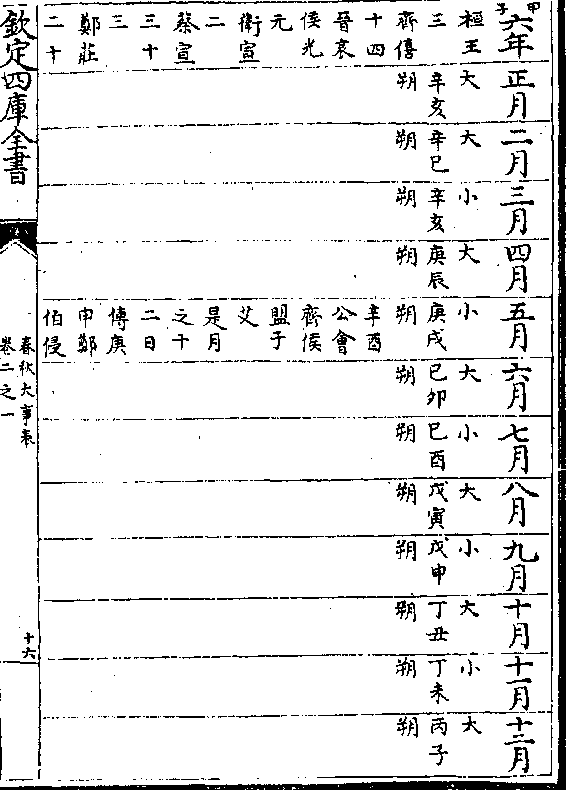 甲子
六年
桓王
三
齊僖
十四
晉哀
侯光
元
衛宣
二
蔡宣
三十
三
鄭莊
二十
正月
大
辛亥
朔
二月
大
辛巳
朔
三月
小
辛亥
朔
四月
大
庚辰
朔
五月
小
庚戌
朔
辛酉
公會
齊侯
盟于
艾
是月
之十
二日
傳庚
申鄭
伯侵
六月
大
已卯
朔
七月
小
已酉
朔
八月
大
戊寅
朔
九月
小
戊申
朔
十月
大
丁丑
朔
十一月
小
丁未
朔
十二月
大
丙子
朔
欽定四庫全書
春秋大事表
卷二之一
十六